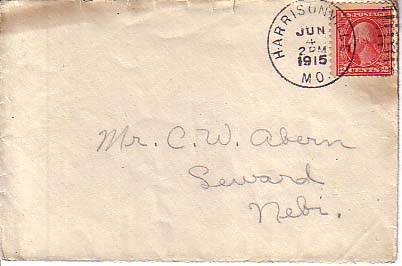 HARRISONV
JUN
4
2 PM
1915
MO.
U.S. POSTAGE
2 CENTS 2
Mr. C. W. Abern
Seward
Nebr.